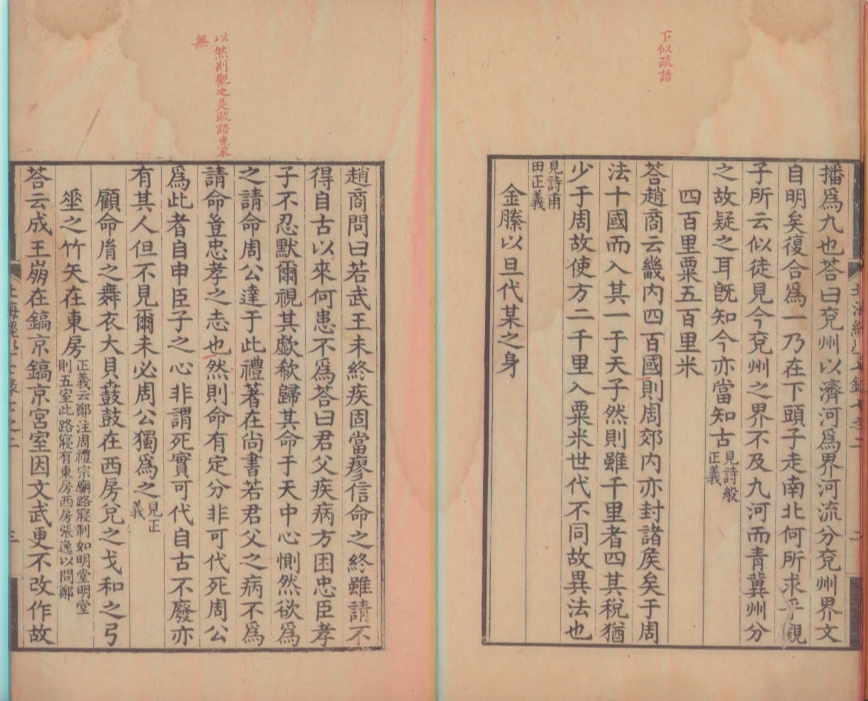 下似疏語
播爲九也荅曰兗州以濟河爲界河流分兗州界文
自明矣復合爲一乃在下頭子走南北何所求乎觀
子所云似徒見今兗州之界不及九河而青冀州分
之故疑之耳旣知今亦當知古見詩般正義
四百里粟五百里米
荅趙商云畿内四百國則周郊内亦封諸矦矣于周
法十國而入其一于天子然則雖千里者四其稅猶
少于周故使方二千里入粟米世代不同故異法也
見詩甫田正義
金縢以旦代某之身
以然則觀之是疏語惠本
無
趙商問曰若武王未終疾固當瘳信命之終雖請不
得自古以來何患不爲荅曰君父疾病方困忠臣孝
子不忍默爾視其歔欷歸其命于天中心惻然欲爲
之請命周公達于此禮著在尙書若君父之病不爲
請命豈忠孝之志也然則命有定分非可代死周公
爲此者自申臣子之心非謂死實可代自古不廢亦
有其人但不見爾未必周公獨爲之見正義
顧命胤之舞衣大貝鼖鼓在西房兌之戈和之弓
垂之竹矢在東房正義云鄭注周禮宗廟路寢制如明堂明堂則五室此路寢有東房西房張逸以問鄭
荅云成王崩在鎬京鎬京宮室因文武更不改作故